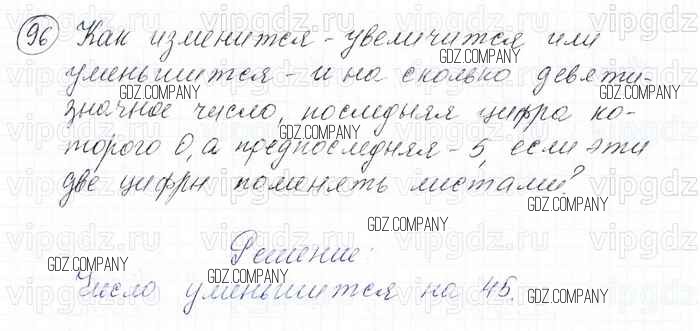 96 Как изменится - увеличится или
уменьшится - и на сколько девяти-
значное число, последняя цифра ко-
торого 0, а предпоследняя - 5, если эти
две цифры поменять местами?
Решение:
Число уменьшится на 45.
vipgdz.ru
GDZ.COMPANY